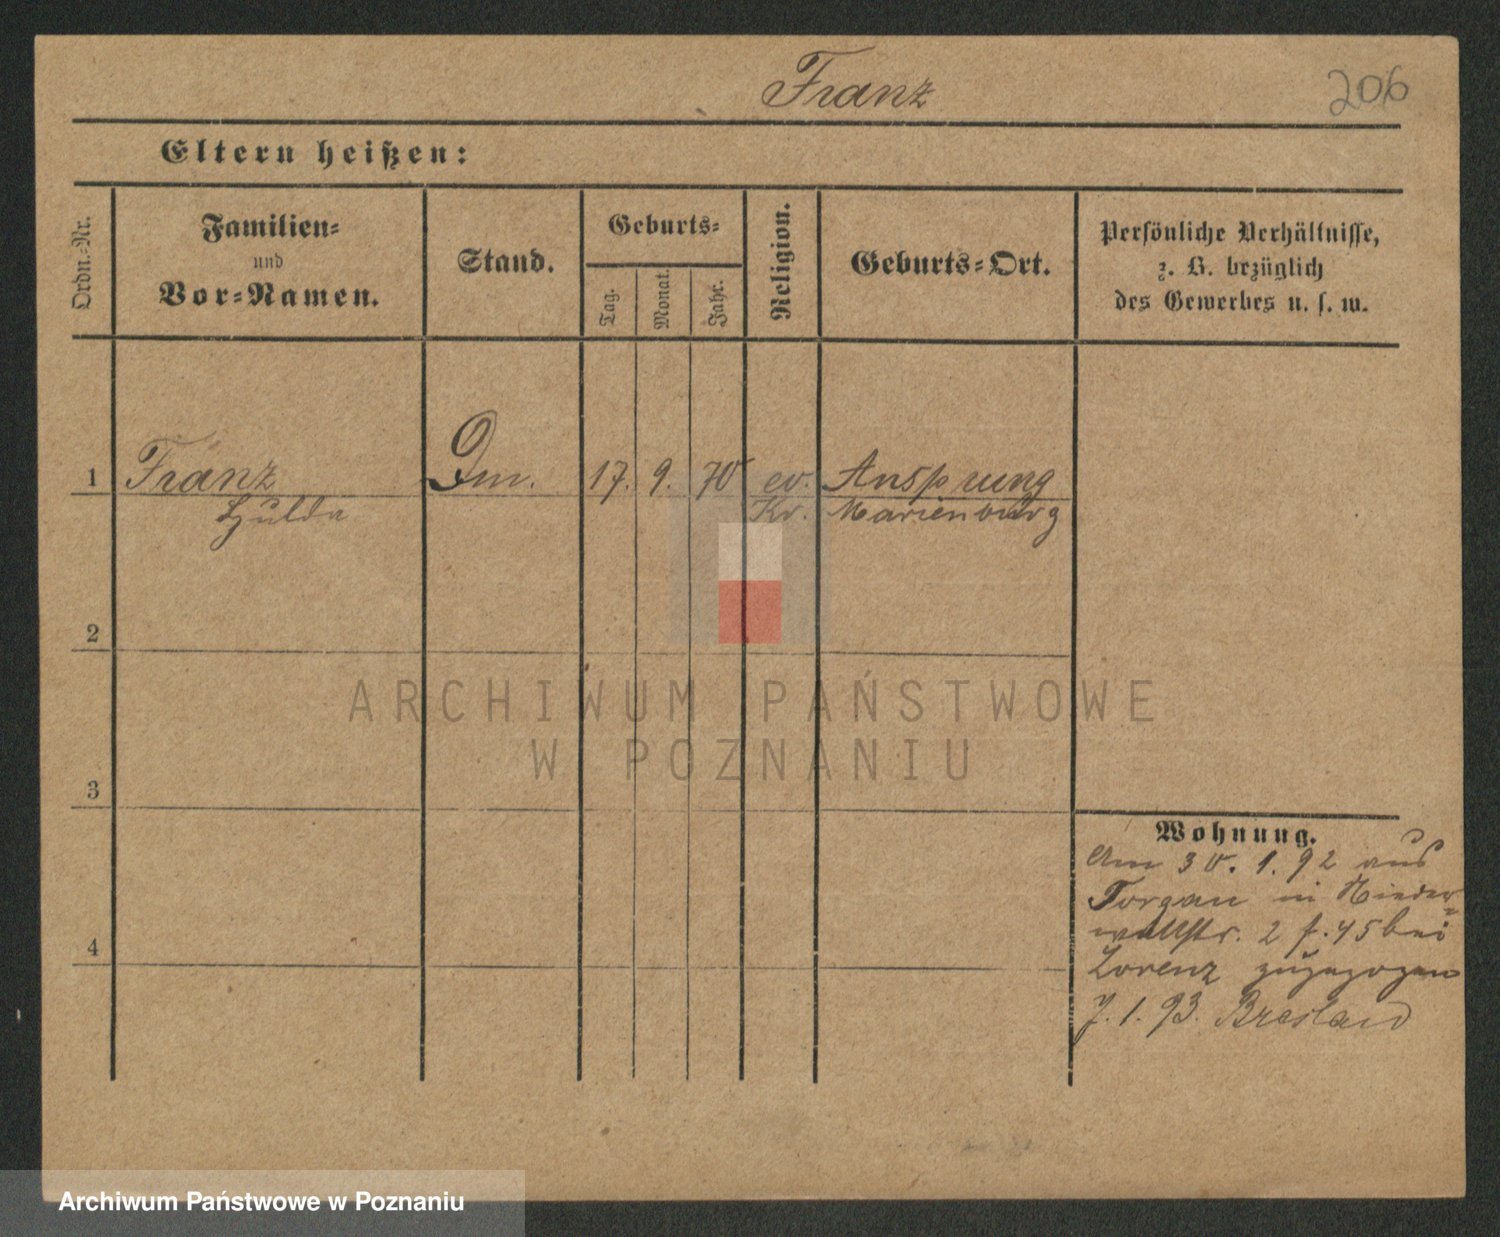 Franz
206
Eltern heißen:
Ordn.-Nr.
Familien-
und
Vor-Namen.
Stand.
Geburts-
Tag.
Monat.
Jahr.
Religion.
Geburts-Ort.
Persönliche Verhältnisse,
z. B. bezüglich
des Gewerbes u. s. w.
1 Franz 17. 9. 70 ev. Ansprung
Hulda Kr. Marienburg
2
3
4
Wohnung.
Am 30. 1. 92 aus
Torgau in Nieder=
wallstr. 2 f. 45 bei
Lorenz zugezogen
7. 1. 93. Breslau
ARCHIWUM PAŃSTWOWE
W POZNANIU
Archiwum Państwowe w Poznaniu